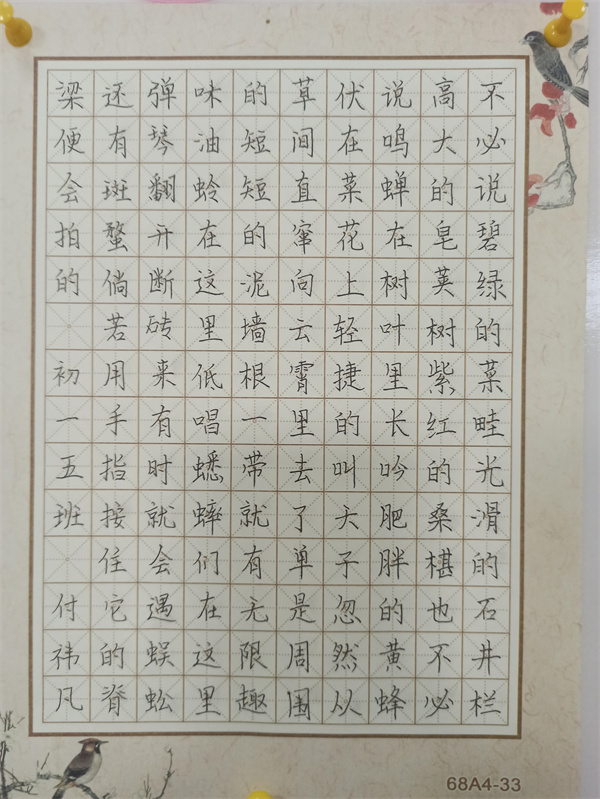 不必说碧绿的菜畦光滑的石井栏
高大的皂荚树紫红的桑椹也不必
说鸣蝉在树叶里长吟肥胖的黄蜂
伏在菜花上轻捷的叫天子忽然从
草间直窜向云霄里去了单是周围
的短短的泥墙根一带就有无限趣
味油蛉在这里低唱蟋蟀们在这里
弹琴翻开断砖来有时就会遇蜈蚣
还有斑蝥倘若用手指按住它的脊
梁便会拍的 初一五班 付祎凡
68A4-33